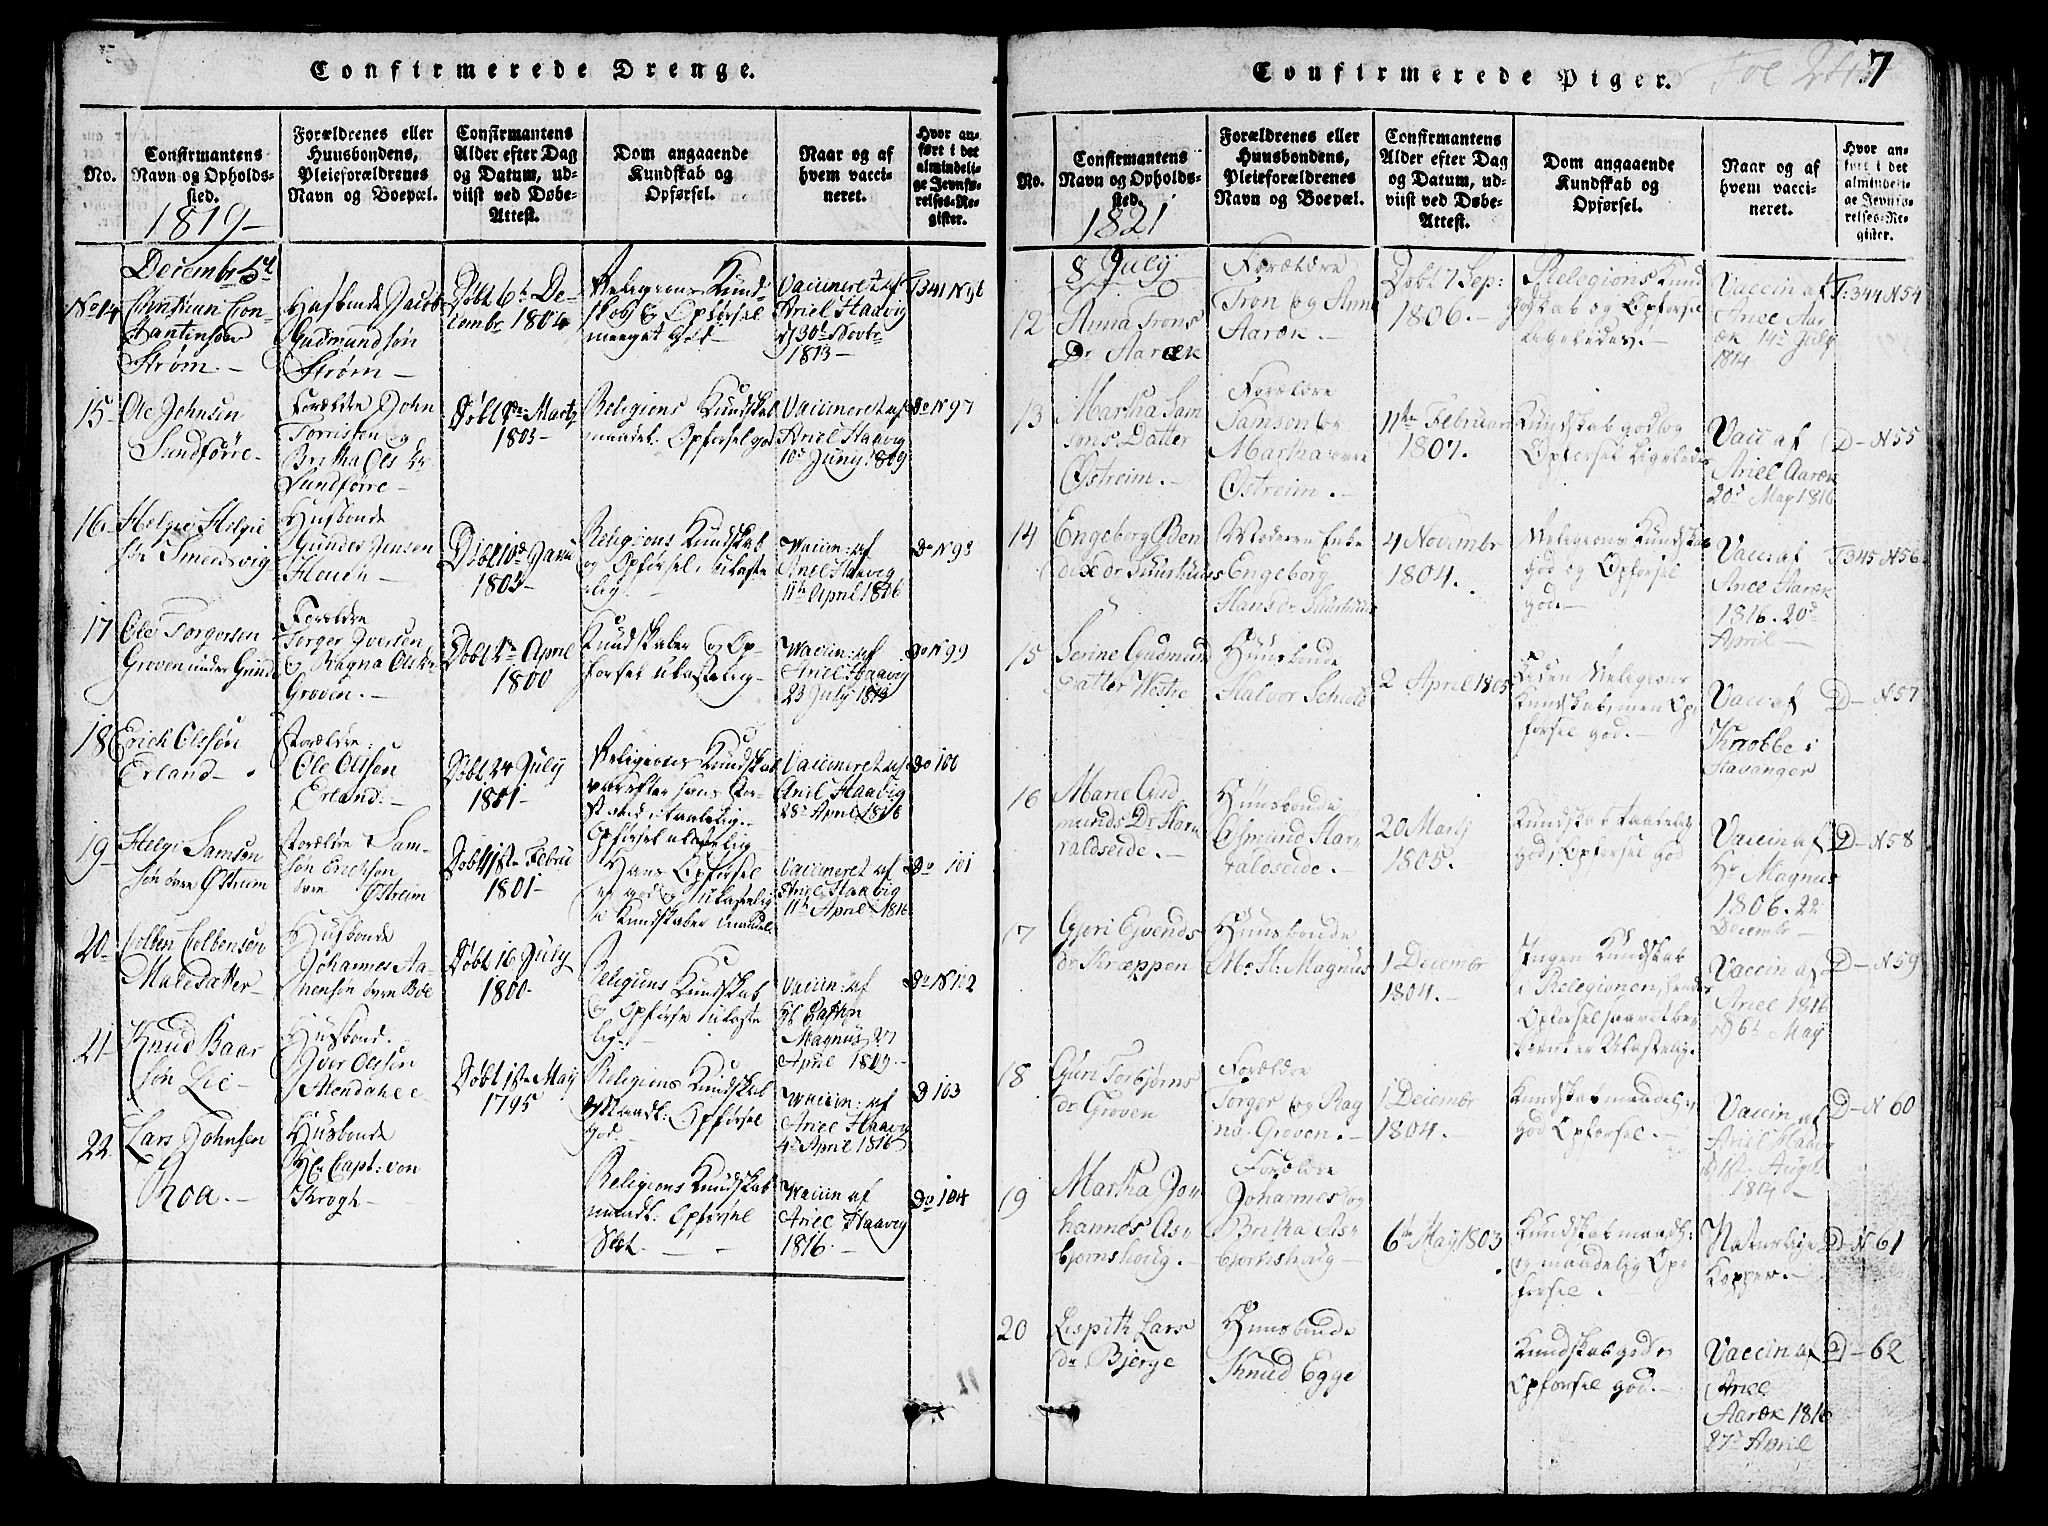 Confirmerede Drenge.
No.
Confirmantens
Navn og Opholds-
sted.
1819-
Forældrenes eller
Huusbondens,
Pleieforældrenes
Navn og Boepæl.
Confirmantens
Alder efter Dag
og Datum, ud-
viist ved Døbe-
Attest.
Dom angaaende
Kundskab og
Opførsel.
Naar og af
hvem vacci-
neret.
Hvor an-
ført i det
almindeli-
ge Jevnfø-
relses-Re-
gister.
Decembr 5d
No 14
Christian Con-
stantinson
Strøm. -
Husbonde Jacob
Gudmundsøn
Strøm -
Døbt 6te De-
cembr. 1804
Religions Kund-
skab og Opførsel
meeget God -
Vaccineret af
Ariel Haavig
d 30te Novbr
1813 -
T341 N 96
15-
Ole Johnsen
Sundførre-
Forældre John
Tørrissen og
Britha Ols Dr
Sundførre -
Døbt Martz
1803-
Religions Kundskab
maadel. Opførsel god
Vaccineret af
Ariel Haavig
10d Juny 1809
Do N 97
16-
Helgie Helgie
Smedsvig
Husbonde
Gunder Jensen
Houen -
1803-
Religions Kundskab
og Opførsel, ulaste
elig -
Vaccin: af
Ariel Haavig
11te April 1816
Do N 98
17
Ole Torgersen
Groven under Grinde
Forældre
Torger Iversen
og Ragna Olsdr
Groven. -
Døbt April
1800
Kundskaber og Op-
førsel ulastelig -
Vaccin: af
Ariel Haavig
23 July 1813
Do N 99
18
Erich Olssøn
Erland -
Forældre:
Ole Olssøn
Erland. -
Døbt 24 July
1801-
Religions Kundskab
var efter hans For-
stand, taalelig. -
Opførsel ulastelig
Vaccineret af
Ariel Haavig
28de April 1816
Do 100
19-
Helgi Samson
søn øvre Østreim
Forældre Sam-
søn Ericksøn
øvre Østreim
Døbt 1ste Febru
1801-
Hans Opførsel
er god og ulastelig
Kundskaber maadel.
Vaccineret af
Ariel Haavig
11te April 1816
Do 101
20-
Colben Colbensøn
Malesætter -
Husbonde
Johannes Aa-
nensøn øvre Bøe
Døbt 16 July
1800-
Religions Kundskab
og Opførse ulaste
lig. -
Vaccin: af
Magnus 27
April 1809 -
Do N 102
21-
Knud Baar
søn Lie -
Husbond.
Iver Olssøn
Alendahl
Døbt 1ste May
1795
Religions Kundskab
Maadl: Opførsel
God. -
Vaccin: af
Ariel Haavig
4de April 1816
D 103
22
Lars Johnsen
Roa. -
Husbonde
Hr Capt: von
Krogh -
Religions Kundskab
maadl: Opførsel
Slet. -
Vaccin af
Ariel Haavig
1816. -
Do 104
Confirmerede Piger.
7
No.
Confirmantens
Navn og Opholds-
sted.
1821
Forældrenes eller
Huusbondens,
Pleieforældrenes
Navn og Boepæl.
Confirmantens
Alder efter Dag
og Datum, ud-
viist ved Døbe-
Attest.
Dom angaaende
Kundskab og
Opførsel.
Naar og af
hvem vacci-
neret.
Hvor an-
ført i det
almindeli-
ge Jevnfø-
relses-Re-
gister.
8 July
12
Anna Trons
Dr Aaræk
Forældre
Tron og Anna
Aaræk. -
Døbt 7 Sep:
1806. -
Religions Kund
skab og Opførsel
ligeledes. -
Vaccin af
Ariel Aar
æk 14de July
1814
T: 344 N 54
13
Martha Sam
sons Datter
Østreim. -
Forældre
Samson og
Martha øvre
Østreim. -
11te Februar
1807.
Kundskab god og
Opførsel ligeledes
Vacc af
Ariel Aaræk
20de May 1816
D- N 55
14
Engeborg Øen
dix dr Suurhuus
Moderen Enke
Engeborg
Hans dr Suurhuus
4 Novembr
1804.
Religions Kundskab
god og Opførsel
god. -
Vacc af
Ariel Aaræk
1816. 20de
April -
T345 N56.
15
Serine Gudmund
datter Westre
Huusbonde
Halvor Schold
2 April 1805
Liden Religions
Kundskab, men Op
førsel god. -
Vacc af
Krobbe i
Stavanger
D- N 57
16
Marie Gud
munds Dr Har
raldseide. -
Huusbonde
Osmund Har
raldseide. -
20 Marty
1805. -
Kundskab taalelig
god, Opførsel God
Vaccin af
Hr Magnus
1806. 22
Decembr -
D- N58
17
Gjøri Ejvends
dr Kræppen
Huusbonde
Mr H: Magnus
1 Decembr
1804. -
Ingen Kundskab
i Religionen, hendes
Opførsel saavidt be
kiendt er Ulastelig. -
Vaccin af
Ariel 1816
d 6te May
D- N59
18
Guri Torbjørns
dr Groven
Forældre
Torger og Rag
na Groven. -
1 Decembr
1804. -
Kundskab maadel:
god Opførsel. -
Vaccin af
Ariel Haavig
d 1ste August
1814 -
D- N 60
19
Martha Jo
hannes As
bjornshoug. -
Forældre
Johannes og
Britha As
bjornshaug -
6te May 1803
Kundskab maadl:
og maadelig Op
førsel. -
Naturlige
Kopper. -
D- N 61
20
Lispith Lars
dr Bjerge
Huusbonde
Knud Egge
Kundskab god og
Opførsel god. -
Vaccin af
Ariel
Aaræk 1816
27de April
D- 62